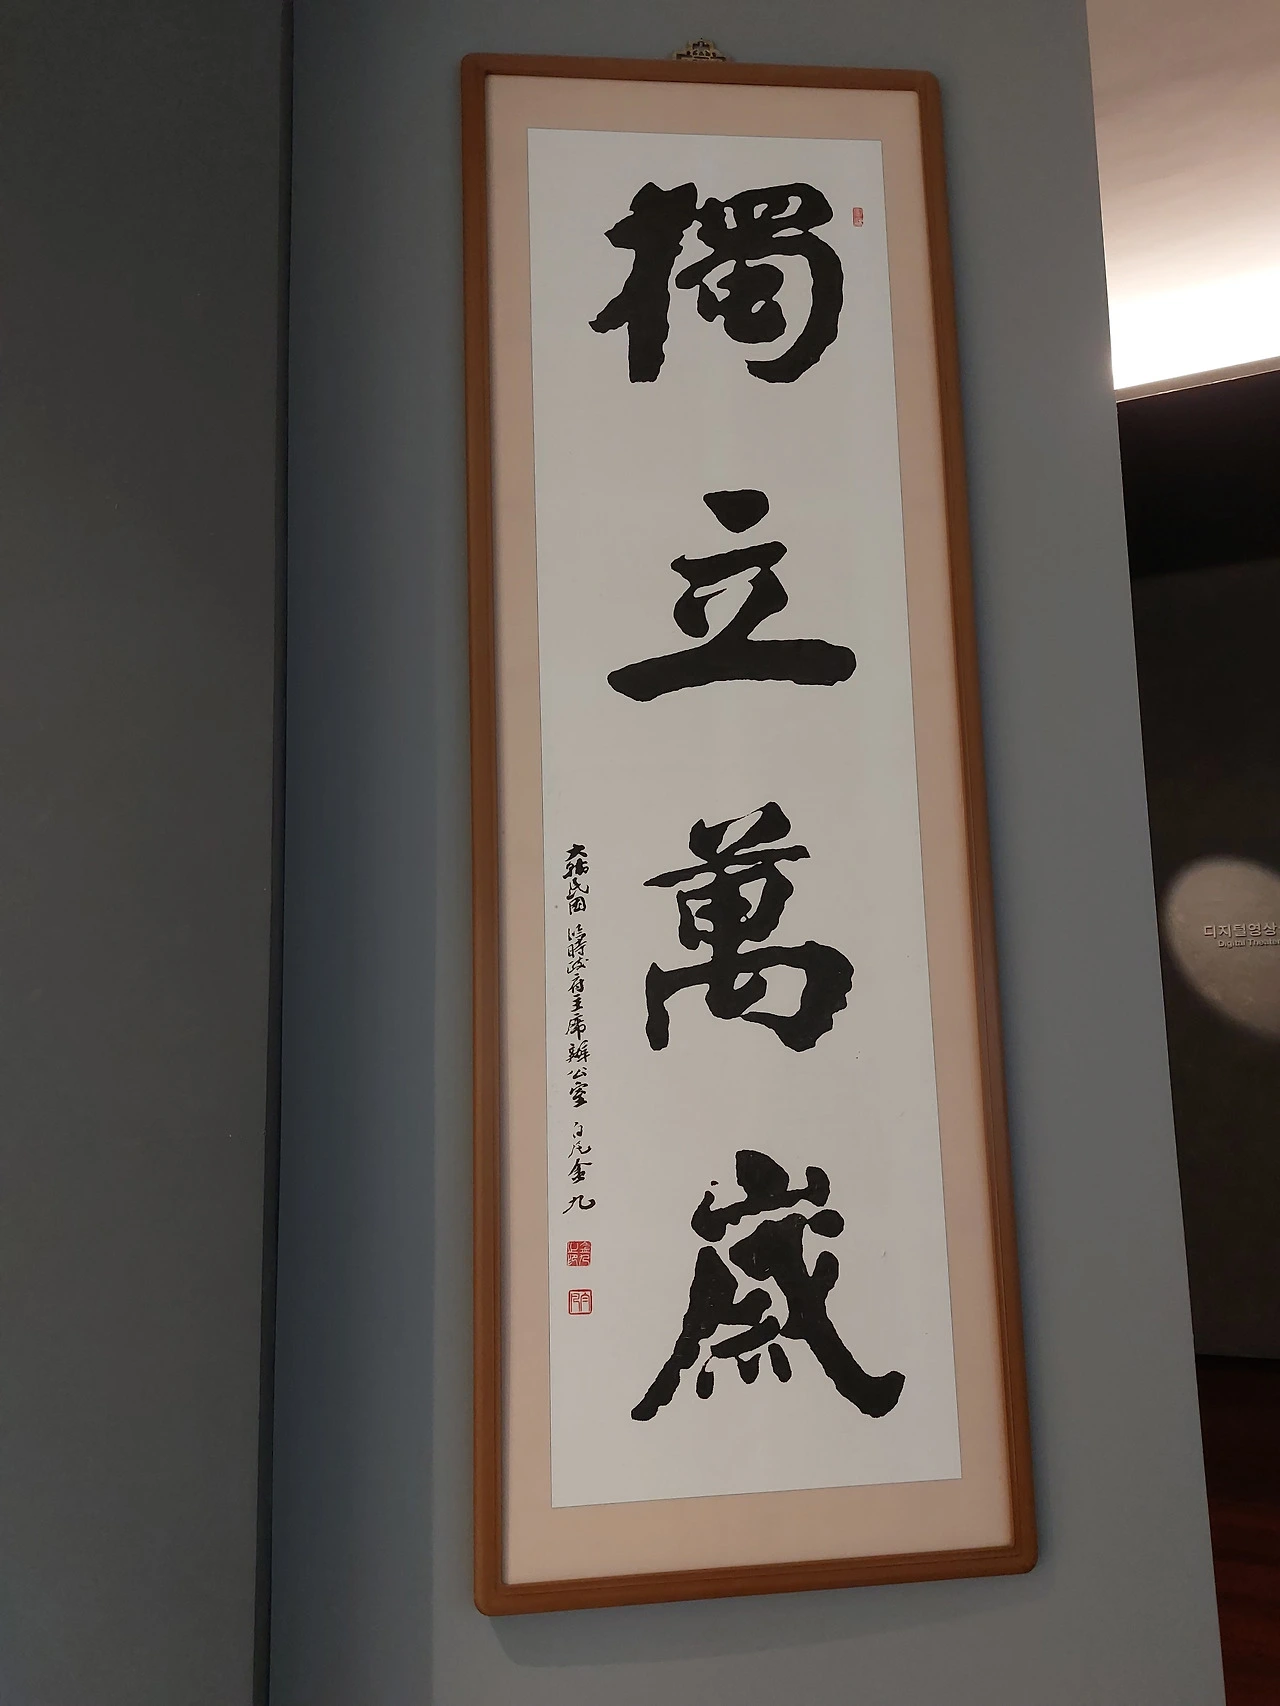 獨立萬歲
大韓民國 臨時政府主席辦公室 白凡金九
디지털영상
Digital Theater